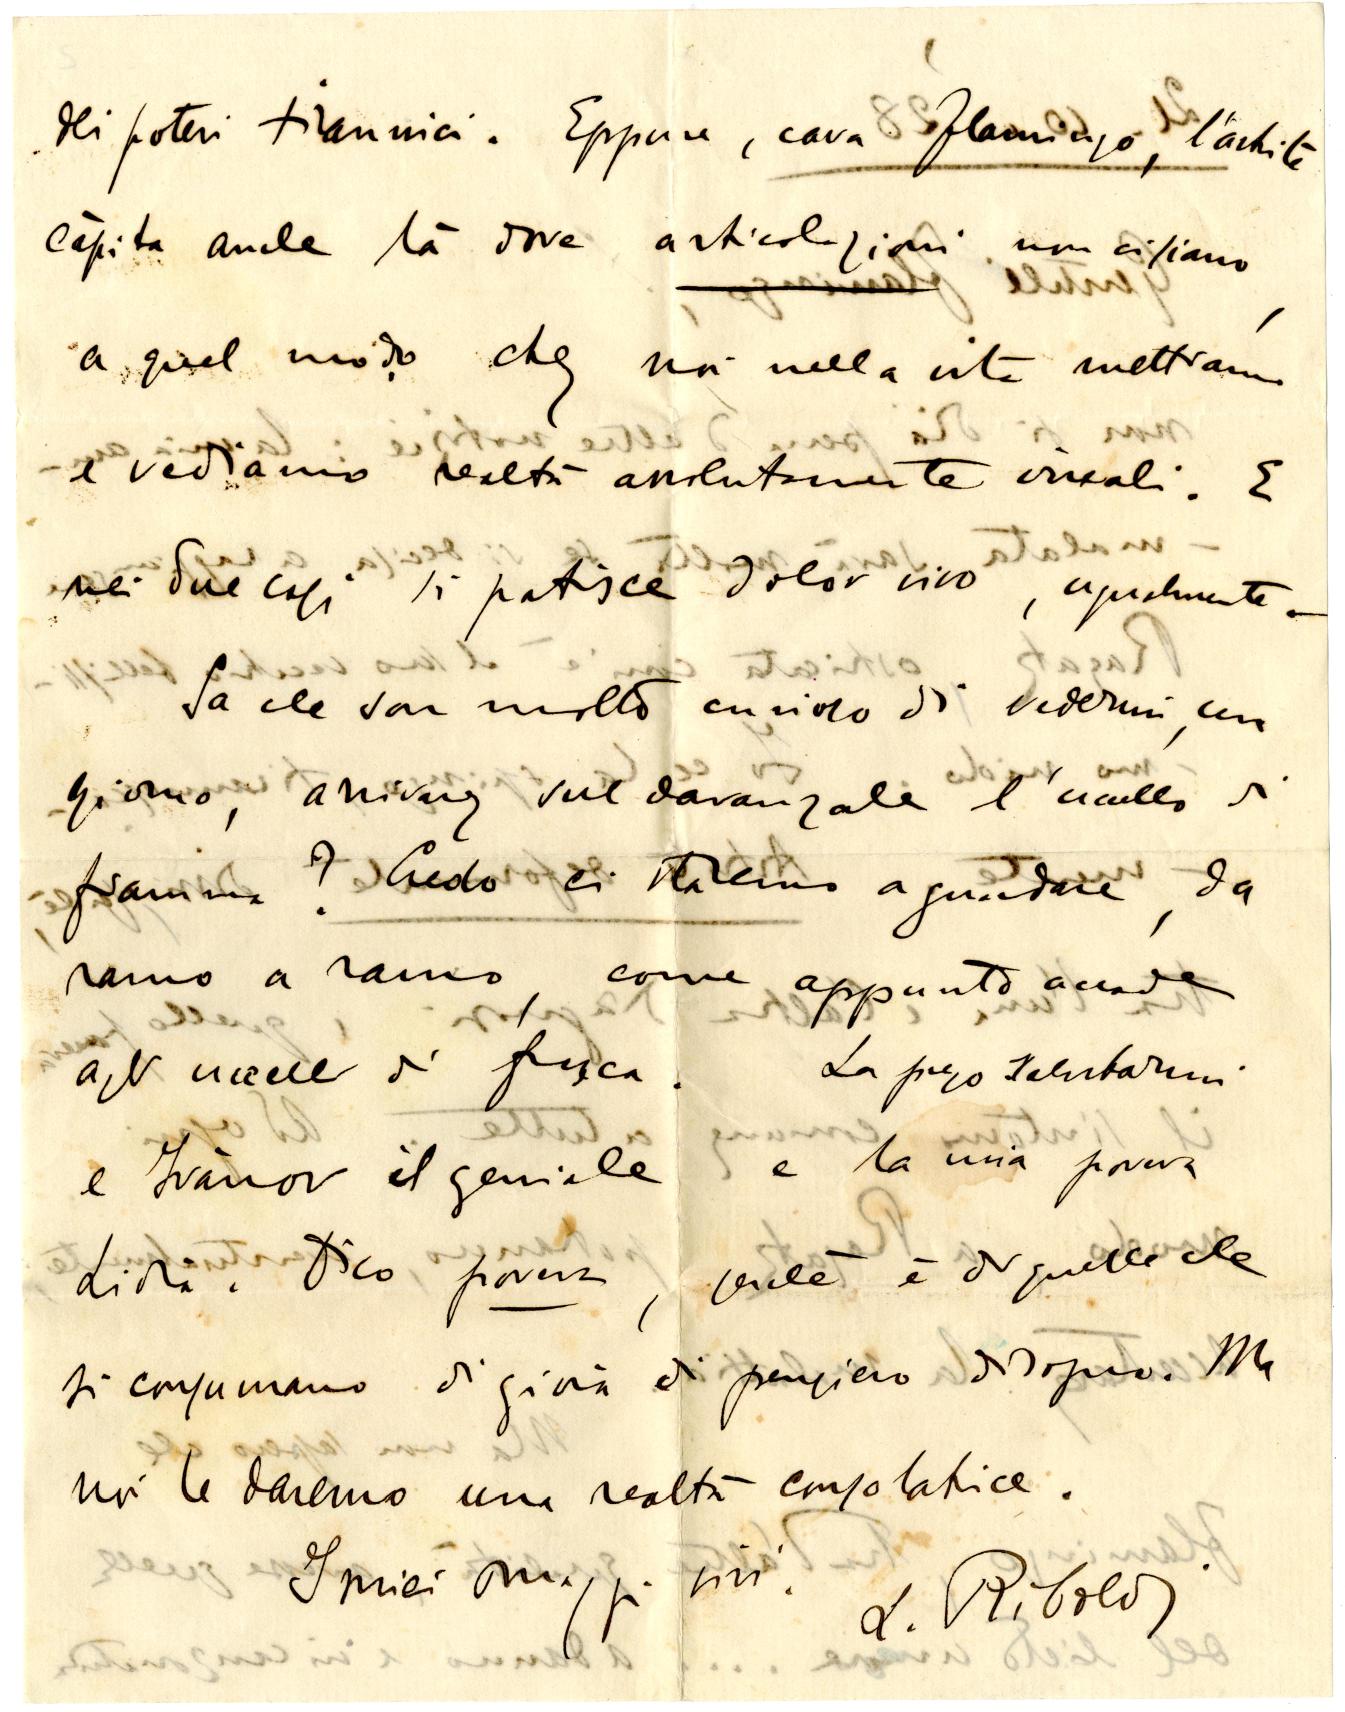 dei poteri tirannici. Eppure, cara Flamingo, l'artrite
càpita anche là dove articolazioni non ci siano,
a quel modo che noi nella vita mettiamo
e vediamo realtà assolutamente irreali. E
nei due casi si patisce dolor vivo, ugualmente.—
Sa che son molto curioso di vedermi, un
giorno, arrivare sul davanzale l'uccello di
fiamma? Credo ci staremo a guardare, da
ramo a ramo, come appunto accade
agli uccelli di frasca. La prego salutarmi
e Ivànov il geniale e la mia povera
Lidia. Dico povera, perchè è di quelle che
si consumano di gioia di pensiero di sogno. Ma
noi le daremo una realtà consolatrice.
I miei omaggi vivi.
L. Riboldi